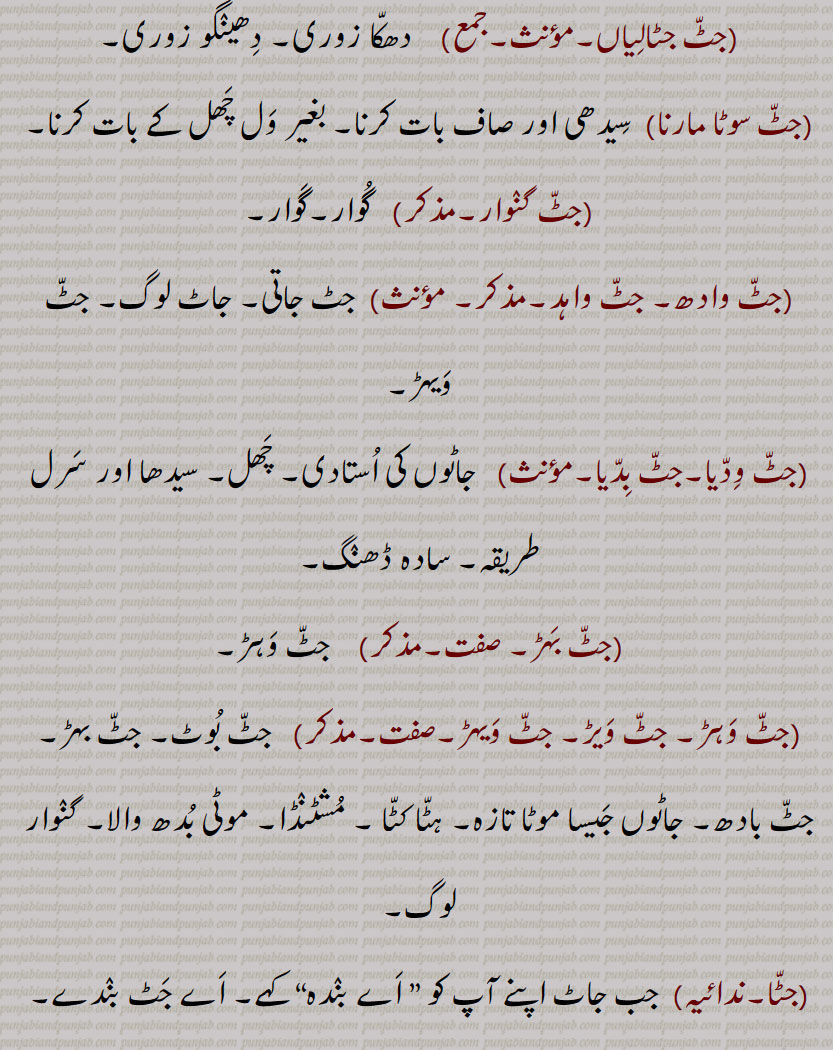 (جٹّ جٹالِیاں۔مؤنث۔جمع) دھکّا زوری۔ دِھینگو زوری۔
(جٹّ سوٹا مارنا) سِیدھی اور صاف بات کرنا۔ بغیر وَل چَھل کے بات کرنا۔
(جٹّ گنوار۔مذکر) گُوار۔گَوار۔
(جٹّ وادھ۔ جٹّ واہد۔مذکر۔ مؤنث) جٹ جاتی۔ جاٹ لوگ۔ جٹّ
وَیہڑ۔
(جٹّ وِدّیا۔جٹّ بِدّیا۔مؤنث) جاٹوں کی اُستادی۔ چَھل۔ سیدھا اور سَرل
طریقہ۔ سادہ ڈھنگ۔
(جٹّ بَہڑ۔ صفت۔مذکر) جٹّ وَہڑ۔
(جٹّ وَہڑ۔ جٹّ وَیڑ۔ جٹّ وَیہڑ۔صفت۔مذکر) جٹّ بُوٹ۔ جٹّ بہڑ۔
جٹّ بادھ۔ جاٹوں جَیسا موٹا تازہ۔ ہٹّا کٹّا ۔ مُشٹنڈا۔ موٹی بُدھ والا۔ گنوار
لوگ۔
(جٹّا۔ندائیہ) جب جاٹ اپنے آپ کو ” اَے بندہ“ کہے۔ اَے جَٹ بندے۔
punjabiandpunjab.com